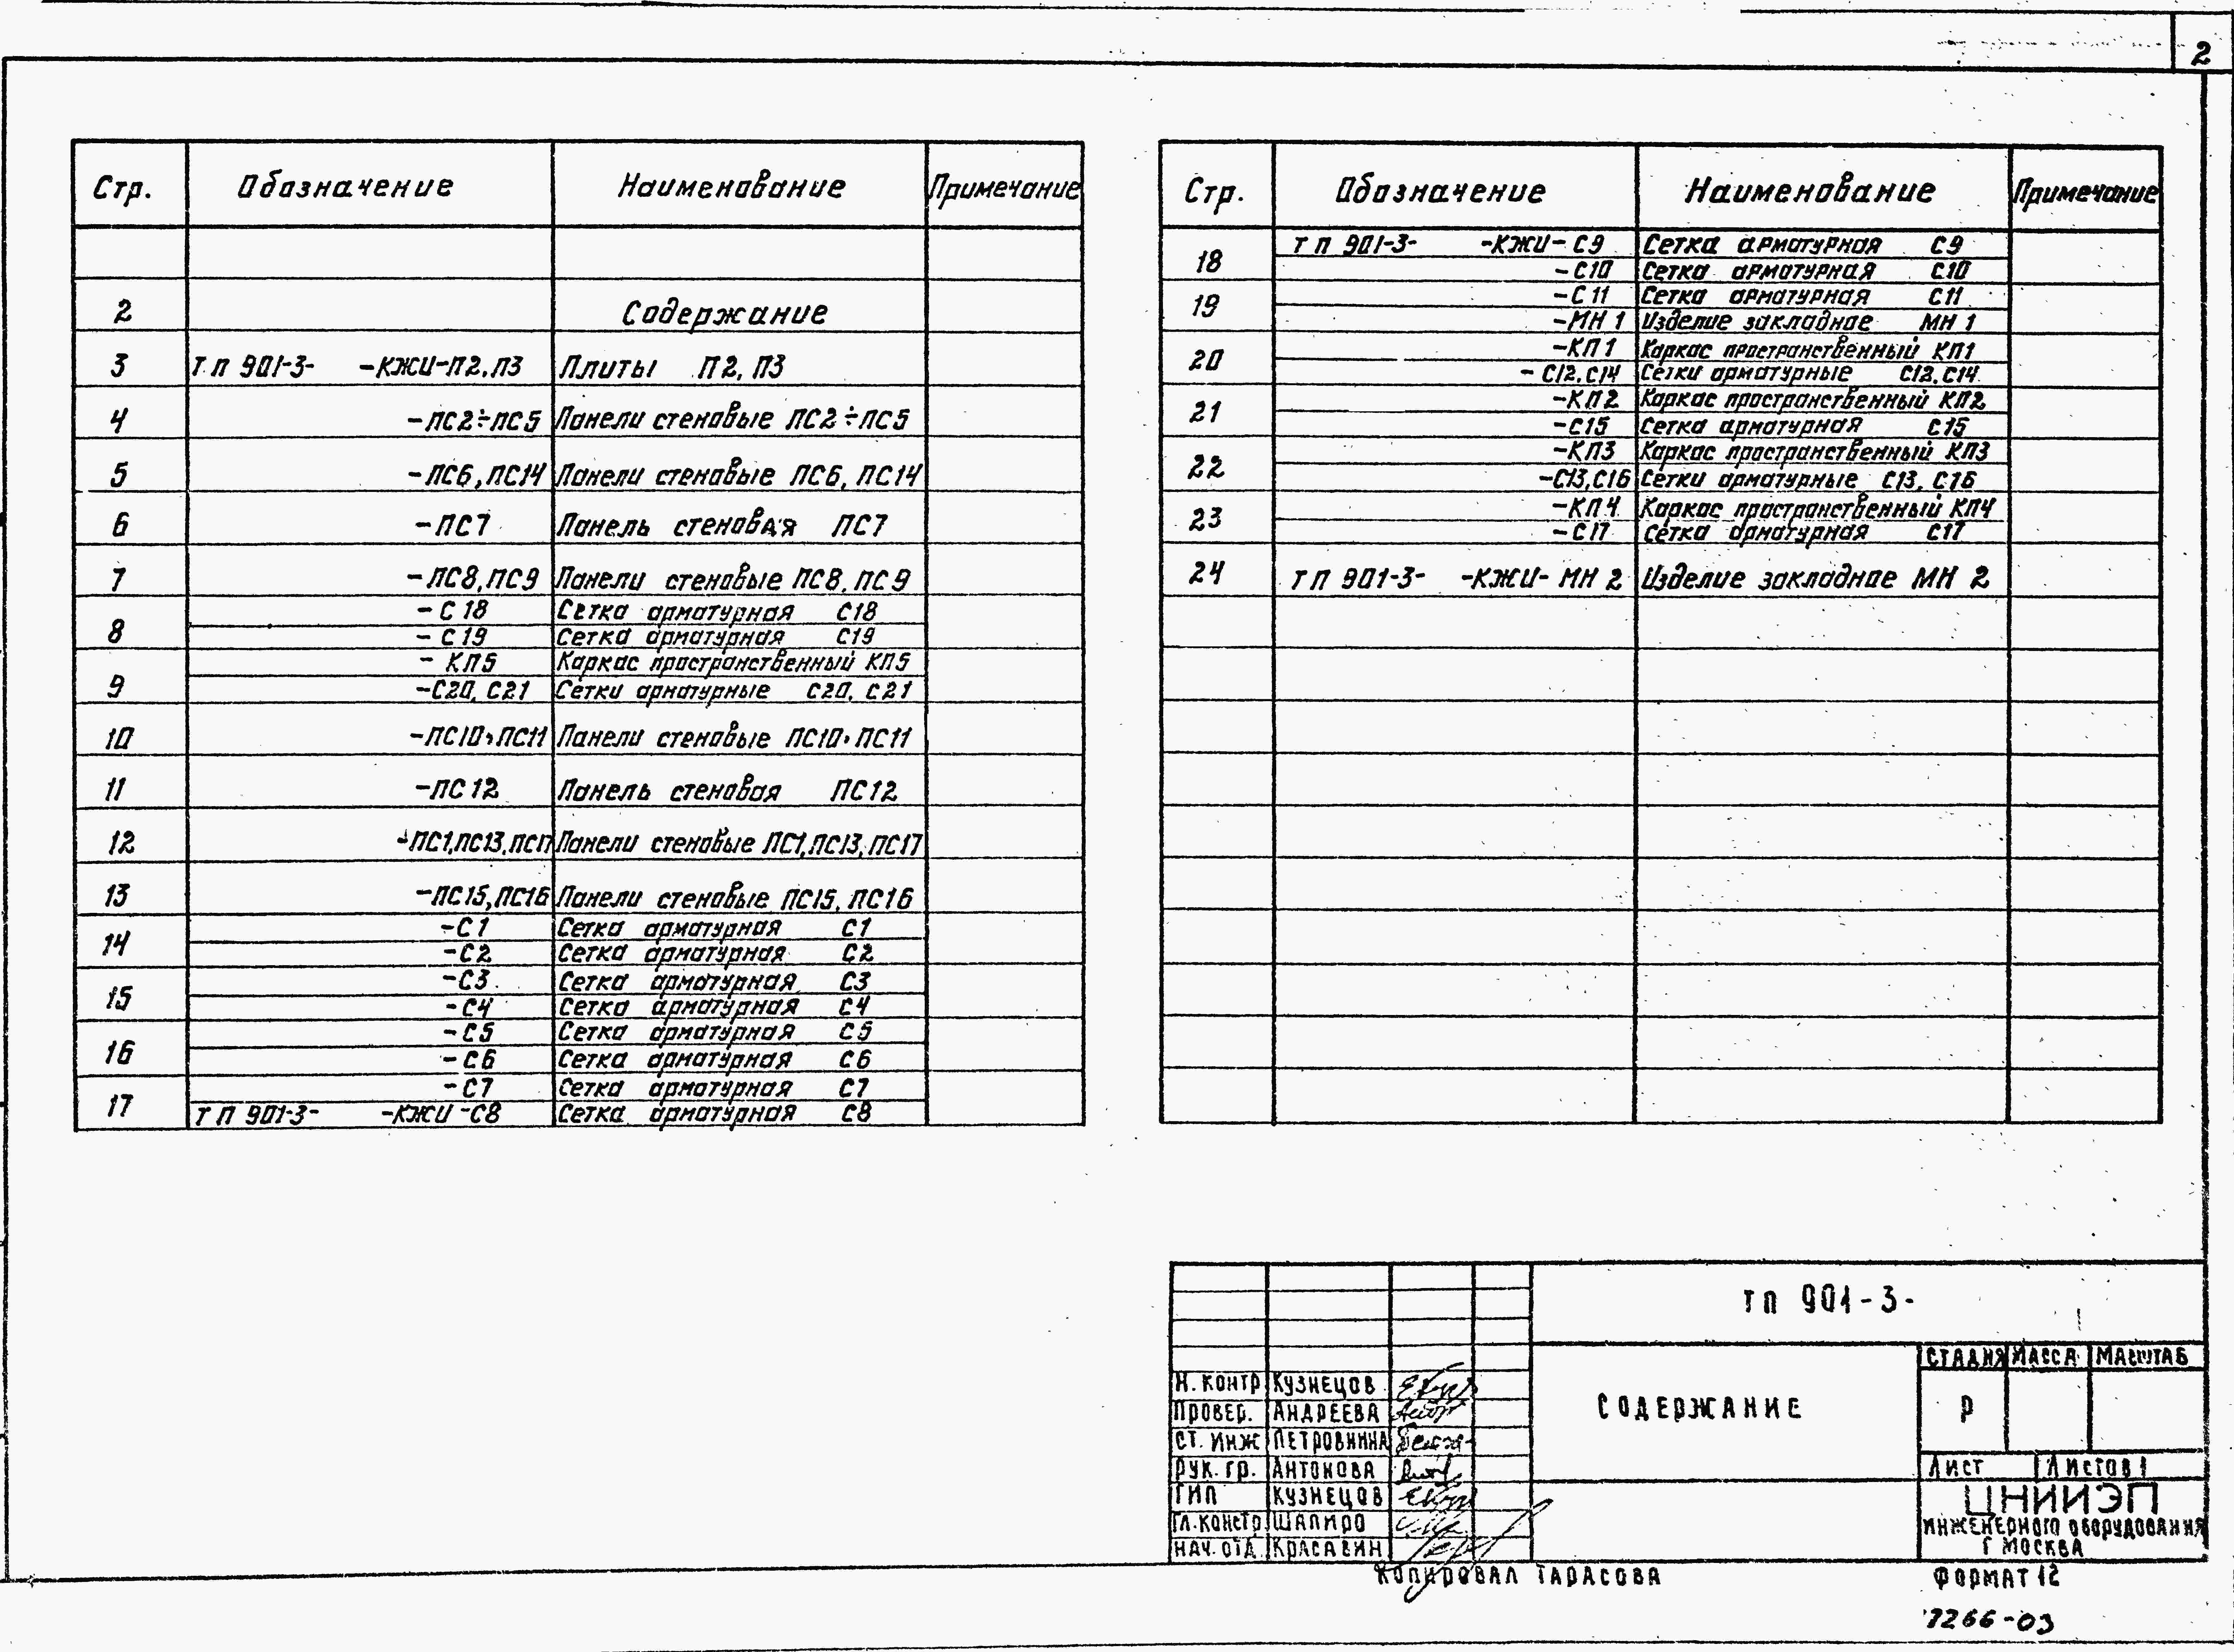 2
Стр. Обозначение Наименование Примечание
2 Содержание
3 ТП 901-3- -КЖИ-П2,П3 Плиты П2, П3
4 -ПС2÷ПС5 Панели стеновые ПС2÷ПС5
5 -ПС6, ПС14 Панели стеновые ПС6, ПС14
6 -ПС7 Панель стеновая ПС7
7 -ПС8, ПС9 Панели стеновые ПС8, ПС9
8 -С18 Сетка арматурная С18
-С19 Сетка арматурная С19
9 -КП5 Каркас пространственный КП5
-С20, С21 Сетки арматурные С20, С21
10 -ПС10, ПС11 Панели стеновые ПС10, ПС11
11 -ПС12 Панель стеновая ПС12
12 -ПС1,ПС13,ПС17 Панели стеновые ПС1,ПС13,ПС17
13 -ПС15,ПС16 Панели стеновые ПС15, ПС16
14 -С1 Сетка арматурная С1
-С2 Сетка арматурная С2
15 -С3 Сетка арматурная С3
-С4 Сетка арматурная С4
16 -С5 Сетка арматурная С5
-С6 Сетка арматурная С6
17 -С7 Сетка арматурная С7
ТП 901-3- -КЖИ-С8 Сетка арматурная С8
Стр. Обозначение Наименование Примечание
18 ТП 901-3- -КЖИ-С9 Сетка арматурная С9
-С10 Сетка арматурная С10
19 -С11 Сетка арматурная С11
-МН1 Изделие закладное МН1
20 -КП1 Каркас пространственный КП1
-С12,С14 Сетки арматурные С12,С14
21 -КП2 Каркас пространственный КП2
-С15 Сетка арматурная С15
22 -КП3 Каркас пространственный КП3
-С13,С16 Сетки арматурные С13, С16
23 -КП4 Каркас пространственный КП4
-С17 Сетка арматурная С17
24 ТП 901-3- -КЖИ-МН2 Изделие закладное МН2
ТП 901-3-
СТАДИЯ МАССА МАСШТАБ
СОДЕРЖАНИЕ Р
Н. КОНТР КУЗНЕЦОВ
ПРОВЕР. АНДРЕЕВА
СТ. ИНЖ ПЕТРОВНИНА
РУК. ГР. АНТОНОВА
ГИП КУЗНЕЦОВ
ГЛ. КОНСТР ШАПИРО
НАЧ. ОТД КРАСАВИН
ЛИСТ ЛИСТОВ 1
ЦНИИЭП
ИНЖЕНЕРНОГО ОБОРУДОВАНИЯ
Г МОСКВА
КОПИРОВАЛ ТАРАСОВА ФОРМАТ 12
7266-03